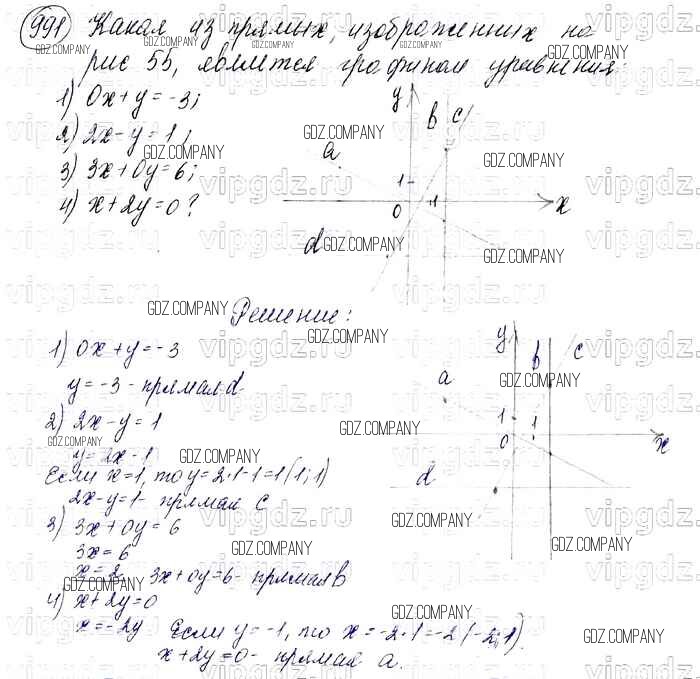 991) Какая из прямых, изображенных на
рис 55, является графиком уравнения:
1) 0x+y=-3;
2) 2x-y=1;
3) 3x+0y=6;
4) x+2y=0?
y
b c
a
1
0 1 x
d
Решение:
1) 0x+y=-3
y=-3 - прямая d
2) 2x-y=1
y=2x-1
Если x=1, то y=2·1-1=1 (1; 1)
2x-y=1- прямая c
3) 3x+0y=6
3x=6
x=2 3x+0y=6- прямая b
4) x+2y=0
x=-2y Если y=-1, то x=-2·1=-2 (-2; 1)
x+2y=0- прямая a.
y
b c
a
1 1
0 x
d
GDZ.COMPANY
vipgdz.ru